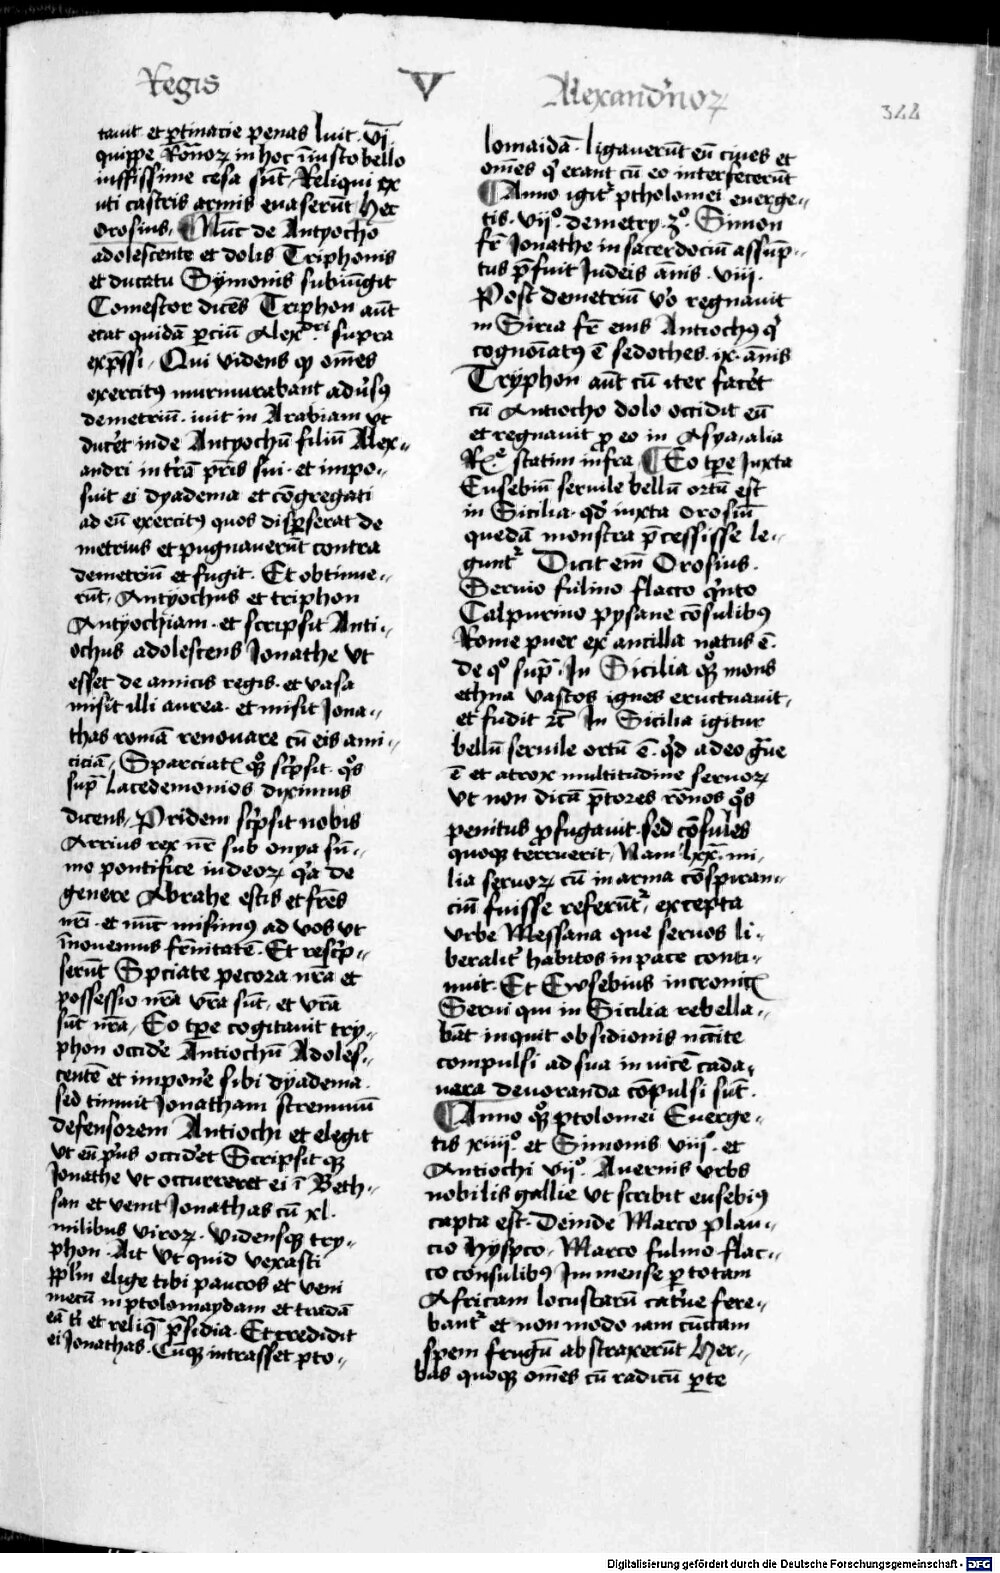 Regis V Alexandrͥnoꝝ
344
tauit et ꝑtinacie penas luit. Vı̄
quippe Rōnoꝝ in hoc iīusto bello
iuffissime cesa sūt. Reliqui ex
uti castris armis euaserūt Hec
Orosius. ¶ Nūc de Antyocho
adolescente et dolis Triphonis
et ducatu Symonis subiūgit
Comestor dicēs Triphon aūt
erat quidā ꝑciū Alexdri supra
exp̄ssi. Qui videns ꝙ om̄es
exercitꝰ murmurabant aduͥsꝰ
demetriū. iuit in Arabiam vt
duceͥt inde Antyochū filiū Alex-
andri in tr̄a pr̄is sui. et impo-
suit ei dyadema et cōgregati
ad eū exercitꝰ quos disꝑserat de
metrius et pugnauerūt contra
demetriū et fugit. Et obtinue-
rūt. Antyochus et triphon
Antyochiam. et scripsit Anti-
ochus adolescens Jonathe vt
esset de amicis regis. et vasa
misit illi aurea. et misit Jona-
thas romā renouare cū eis ami-
ciciā. Sparciatꝭ qͦꝫ scͥpsit. qͦs
sup̄ Lacedemonios diximus
dicens. Pridem scͥpsit nobis
Arrius rex nr̄ sub onya sū-
mo pontifice iudeoꝝ qͥa de
genere Abrahe estis et fr̄es
nr̄i. et nūc misimꝰ ad vos vt
īnouemus fr̄nitatē. Et rescͥp-
serūt Spciate pecora nr̄a et
possessio nr̄a vr̄a sūt. et vr̄a
sūt nr̄a. Eo tꝑe cogitauit try-
phon occideͥ Antiochū Adoles-
centē et imponeͥ sibi dyadema.
sed timuit Jonatham strenuuū
defensorem Antiochi et elegit
vt eū pͥus occideͥt Scripsit qꝫ
Jonathe vt occurreret ei ī Beth-
san et venit Jonathas cū xl.
milibus viroꝝ. vidensqꝫ try-
phon. Ait vt quid vexasti
pp̄lm elige tibi paucos et veni
mecū in ptolomaydam et tradā
eā ti et reliq̄ p̄sidia. Et credidit
ei Jonathas. Cūqꝫ intrasset pto-
lomaidā. ligauerūt eū ciues et
om̄es qͥ erant cū eo interfecerūt
¶ Anno igitͬ ptholomei euerge-
tis. vijͦ. demetry. 3ͦ. Simon
fr̄ Jonathe in sacerdociū assūp-
tus p̄fuit Judeis ānis. viii.
Post demetriū vͦo regnauit
in Siria fr̄ eius Antiochꝰ qͥ
cognoīatꝰ ē sedothes. ix. ānis
Tryphon aūt cū iter faceͥt
cū Antiocho dolo occidit eū
et regnauit ꝓ eo in Asya. alia
Rͤ. statim infra. ¶ Eo tꝑe Juxta
Eusebiū seruile bellū ortū est
in Sicilia. qd̓ iuxta Orosiū
quedā monstra p̄cessisse le-
guntͬ. Dicit em̄ Orosius.
Seruio fulino flacco qͥnto
Calpurino pysane cōsulibꝰ
Rome puer ex ancilla natus ē.
de qͦ sup̄. Jn Sicilia qͦꝫ mons
ethna vastos ignes eructuauit.
et fudit ꝛc̄ Jn Sicilia igitur
bellū seruile ortū ē. qd̓ adeo gͣue
ē et atrox multitudine seruoꝝ
vt non dicā p̄tores rōnos qͦs
penitus ꝓfugauit. sed cōsules
quoqꝫ terruerit. Nam lxx. mi-
lia seruoꝝ cū in arma cōspiran-
ciū fuisse referūtͬ. excepta
vrbe Messana que seruos li-
beralitͬ habitos in pace conti-
nuit. Et Ewsebius in cronicꝭ
Serui qui in Sicilia rebella-
bāt inquit obsidionis nc̄cite
compulsi ad sua in vicē cada-
uara deuoranda cōpulsi sūt.
¶ Anno qͦꝫ ptolomei Euerge-
tis xiiijͦ. et Simonis viijͦ. et
Antiochi vijͦ. Auernis vrbs
nobilis gallie vt scribit eusebiꝰ
capta est. Deinde Marco plau-
cio Hypsco. Marco fulmo flac-
co consulibꝰ Jmmense ꝑ totam
Africam locustarū cateͥue fere-
bantͬ et non modo iam cūctam
spem frugū abstraxerūt Her-
bas quoqꝫ om̄es cū radicū ꝑte
Digitalisierung gefördert durch die Deutsche Forschungsgemeinschaft - DFG